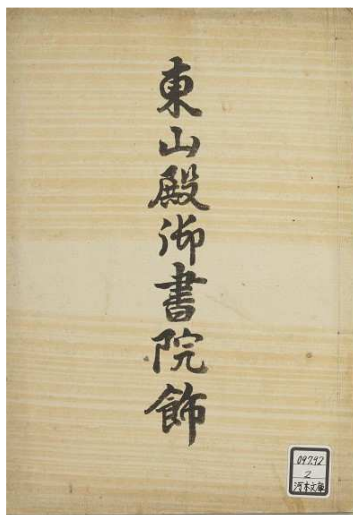 東山殿御書院飾
097.92
2
河本文庫